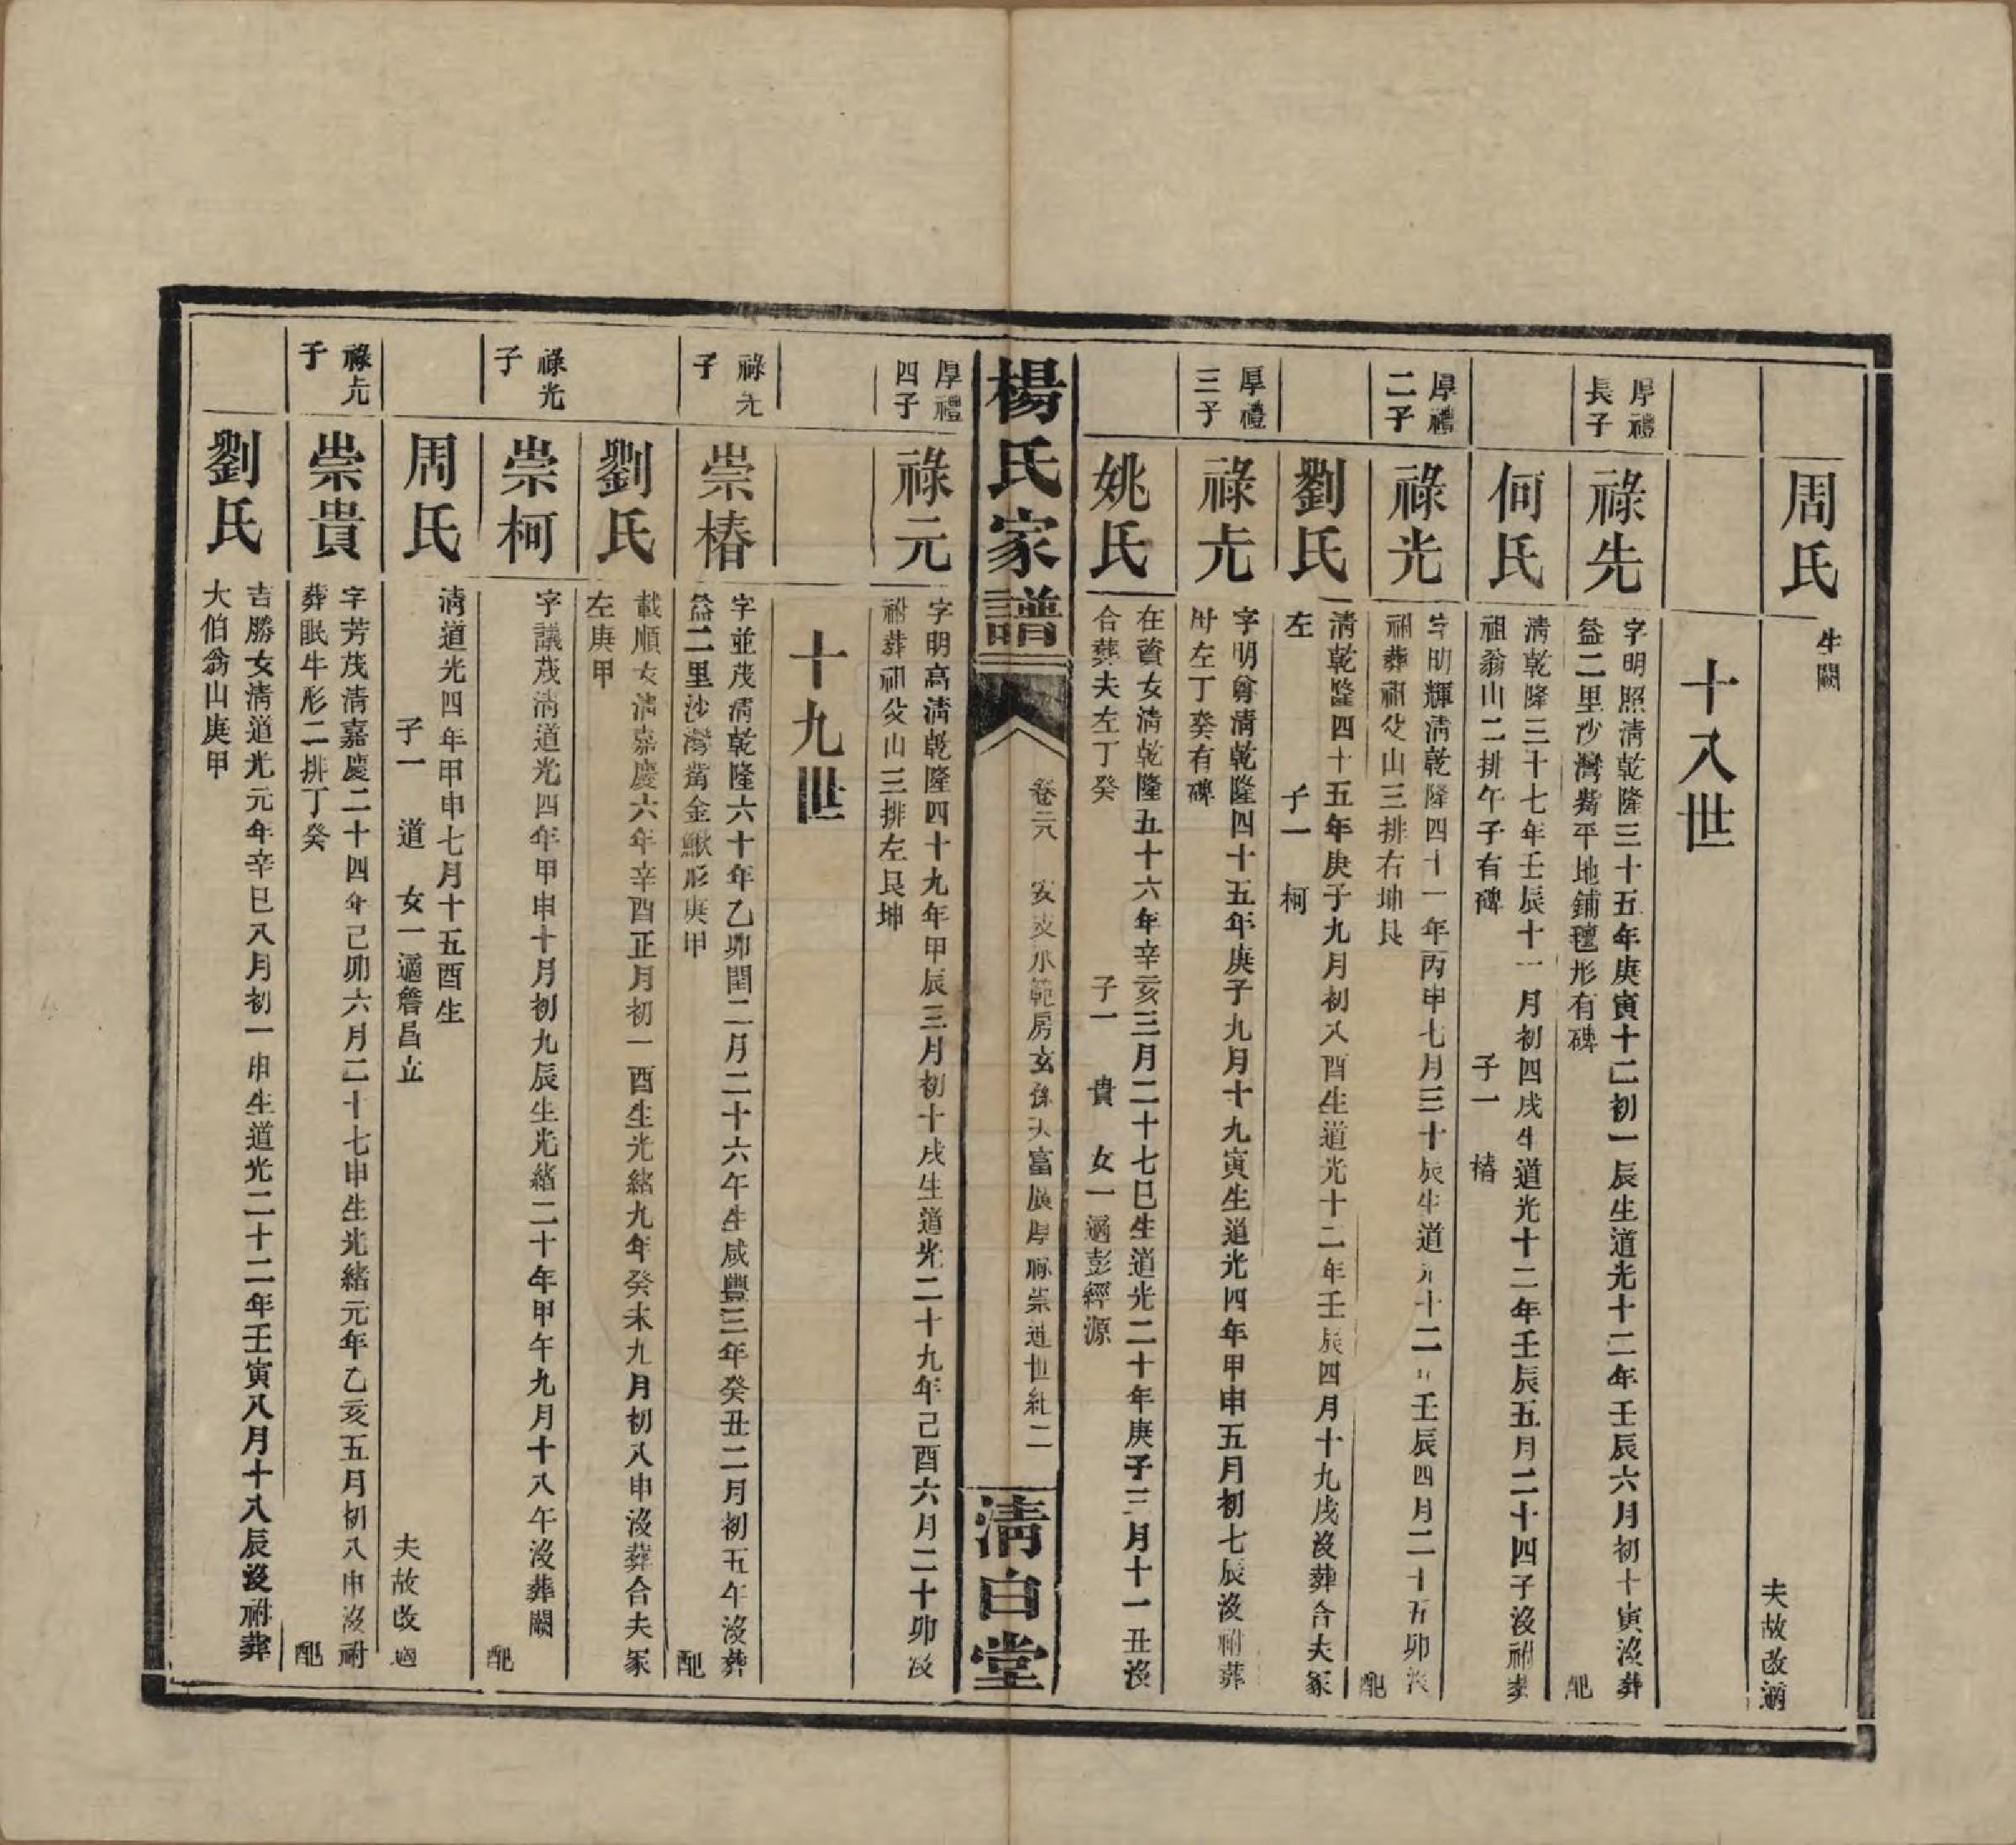 周氏
生闕
夫故改適
十八世
厚禮
長子
祿先
字明照淸乾隆三十五年庚寅十二初一辰生道光十二年壬辰六月初十寅沒葬
益二里沙灣觜平地鋪氊形有碑
配
何氏
淸乾隆三十七年壬辰十一月初四戌生道光十二年壬辰五月二十四子沒祔葬
祖翁山二排午子有碑 子一 椿
厚禮
二子
祿光
字明輝淸乾隆四十一年丙申七月三十辰生道光十二年壬辰四月二十五卯沒
祔葬祖父山三排右坤艮
配
劉氏
淸乾隆四十五年庚子九月初八酉生道光十二年壬辰四月十九戌沒葬合夫冢
左 子一 柯
厚禮
三子
祿尢
字明尊淸乾隆四十五年庚子九月十九寅生道光四年甲申五月初七辰沒祔葬
毌左丁癸有碑
姚氏
在賫女淸乾隆五十六年辛亥三月二十七巳生道光二十年庚子三月十一丑沒
合葬夫左丁癸 子一 貴 女一適彭經源
楊氏家譜
卷二八 房玄孫大富展厚祿崇進世紀二
淸白堂
厚禮
四子
祿元
字明高淸乾隆四十九年甲辰三月初十戌生道光二十九年己酉六月二十卯沒
祔葬祖父山三排左艮坤
十九世
祿先
子
崇椿
字並茂淸乾隆六十年乙卯閏二月二十六午生咸豐三年癸丑二月初五午沒葬
益二里沙灣觜金鰍形庚甲
配
劉氏
載順女淸嘉慶六年辛酉正月初一酉生光緖九年癸未九月初八申沒葬合夫冢
左庚甲
祿光
子
崇柯
字議茂淸道光四年甲申十月初九辰生光緖二十年甲午九月十八午沒葬闕
配
周氏
淸道光四年甲申七月十五酉生
子一 道 女一適詹昌立
夫故改適
祿尢
子
崇貴
字芳茂淸嘉慶二十四年己卯六月二十七申生光緖元年乙亥五月初八申沒祔
葬眠牛形二排丁癸
配
劉氏
吉勝女淸道光元年辛巳八月初一申生道光二十二年壬寅八月十八辰沒祔葬
大伯翁山庚甲